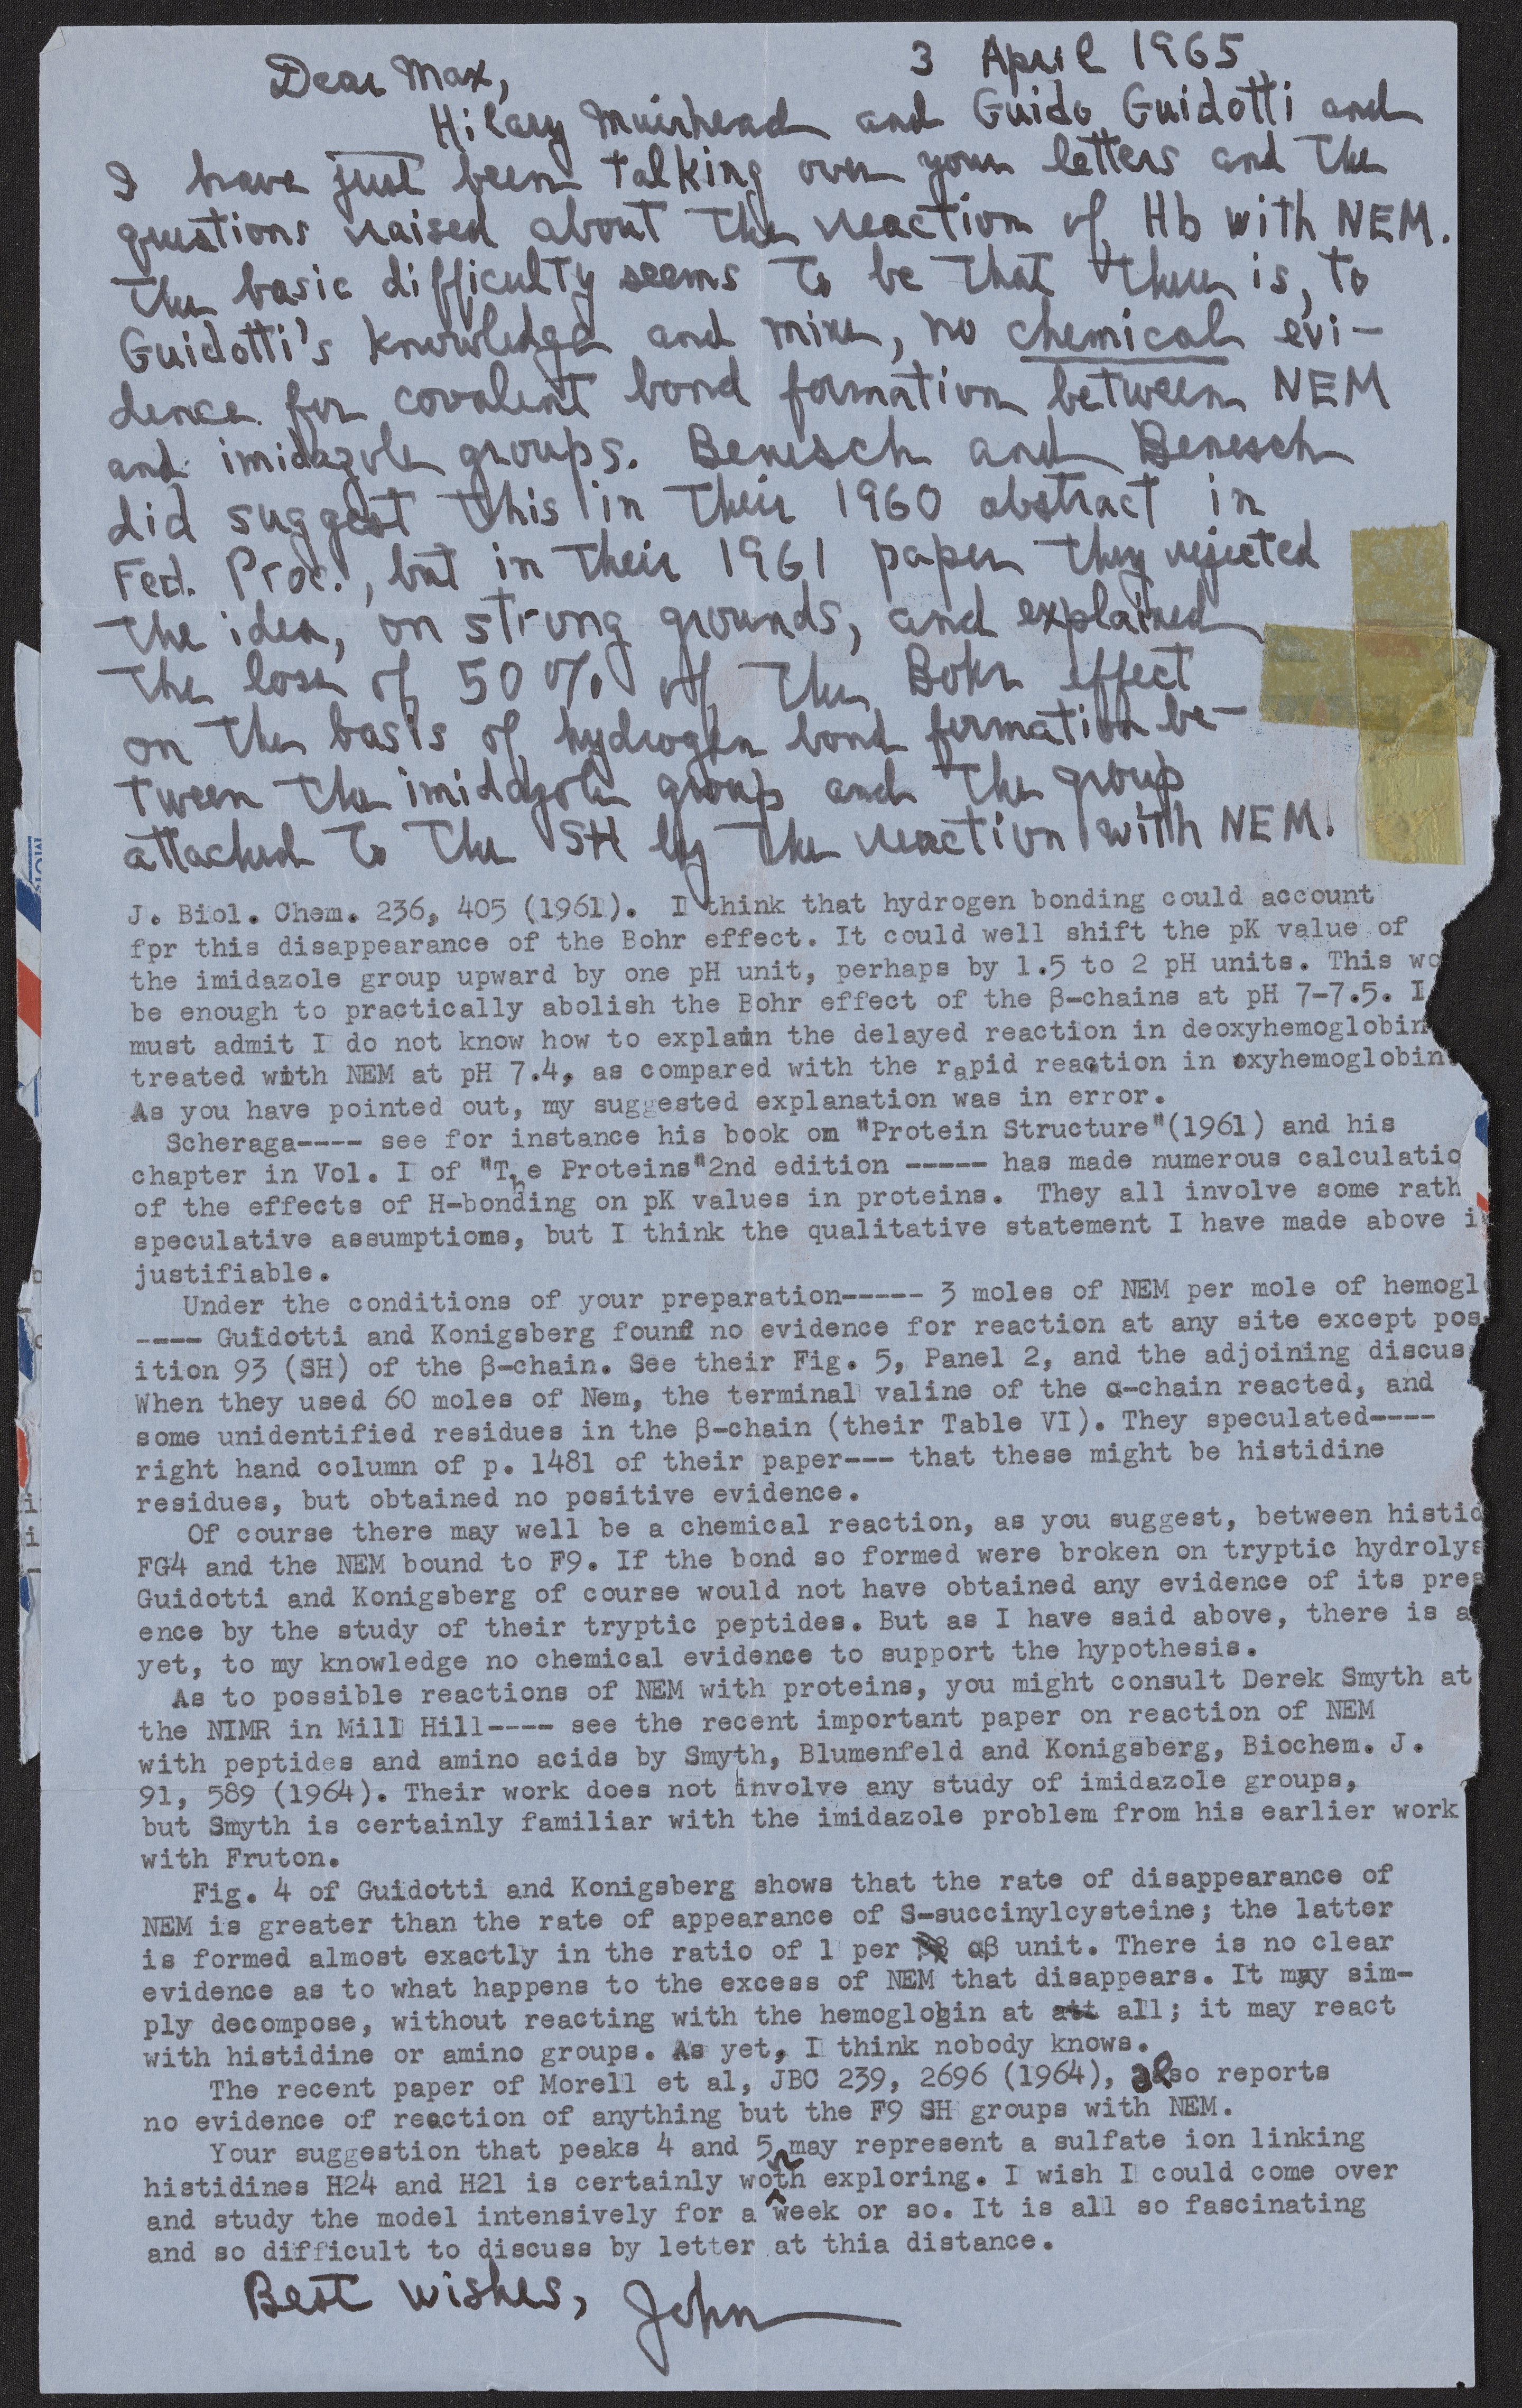 3 April 1965
Dear Max,
Hilary Muirhead and Guido Guidotti and
I have just been talking over your letters and the
questions raised about the reaction of Hb with NEM.
The basic difficulty seems to be that there is, to
Guidotti's knowledge and mine, no chemical evi-
dence for covalent bond formation between NEM
and imidazole groups. Benesch and Benesch
did suggest this in their 1960 abstract in
Fed. Proc., but in their 1961 paper they rejected
the idea, on strong grounds, and explained
the loss of 50% of the Bohr effect
on the basis of hydrogen bond formation be-
tween the imidazole group and the group
attached to the SH by the reaction with NEM.
J. Biol. Chem. 236, 405 (1961). I think that hydrogen bonding could account
for this disappearance of the Bohr effect. It could well shift the pK value of
the imidazole group upward by one pH unit, perhaps by 1.5 to 2 pH units. This wo
be enough to practically abolish the Bohr effect of the β-chains at pH 7-7.5. I
must admit I do not know how to explain the delayed reaction in deoxyhemoglobin
treated with NEM at pH 7.4, as compared with the rapid reaction in oxyhemoglobin.
As you have pointed out, my suggested explanation was in error.
Scheraga---- see for instance his book on "Protein Structure"(1961) and his
chapter in Vol. I of "The Proteins"2nd edition ----- has made numerous calculatio
of the effects of H-bonding on pK values in proteins. They all involve some rath
speculative assumptions, but I think the qualitative statement I have made above i
justifiable.
Under the conditions of your preparation----- 3 moles of NEM per mole of hemogl
---- Guidotti and Konigsberg found no evidence for reaction at any site except pos
ition 93 (SH) of the β-chain. See their Fig. 5, Panel 2, and the adjoining discus
When they used 60 moles of Nem, the terminal valine of the α-chain reacted, and
some unidentified residues in the β-chain (their Table VI). They speculated----
right hand column of p. 1481 of their paper--- that these might be histidine
residues, but obtained no positive evidence.
Of course there may well be a chemical reaction, as you suggest, between histid
FG4 and the NEM bound to F9. If the bond so formed were broken on tryptic hydrolys
Guidotti and Konigsberg of course would not have obtained any evidence of its pres
ence by the study of their tryptic peptides. But as I have said above, there is a
yet, to my knowledge no chemical evidence to support the hypothesis.
As to possible reactions of NEM with proteins, you might consult Derek Smyth at
the NIMR in Mill Hill---- see the recent important paper on reaction of NEM
with peptides and amino acids by Smyth, Blumenfeld and Konigsberg, Biochem. J.
91, 589 (1964). Their work does not involve any study of imidazole groups,
but Smyth is certainly familiar with the imidazole problem from his earlier work
with Fruton.
Fig. 4 of Guidotti and Konigsberg shows that the rate of disappearance of
NEM is greater than the rate of appearance of S-succinylcysteine; the latter
is formed almost exactly in the ratio of 1 per αβ unit. There is no clear
evidence as to what happens to the excess of NEM that disappears. It may sim-
ply decompose, without reacting with the hemoglobin at att all; it may react
with histidine or amino groups. As yet, I think nobody knows.
The recent paper of Morell et al, JBC 239, 2696 (1964), also reports
no evidence of reaction of anything but the F9 SH groups with NEM.
Your suggestion that peaks 4 and 5 may represent a sulfate ion linking
histidines H24 and H21 is certainly worth exploring. I wish I could come over
and study the model intensively for a week or so. It is all so fascinating
and so difficult to discuss by letter at thia distance.
Best wishes, John